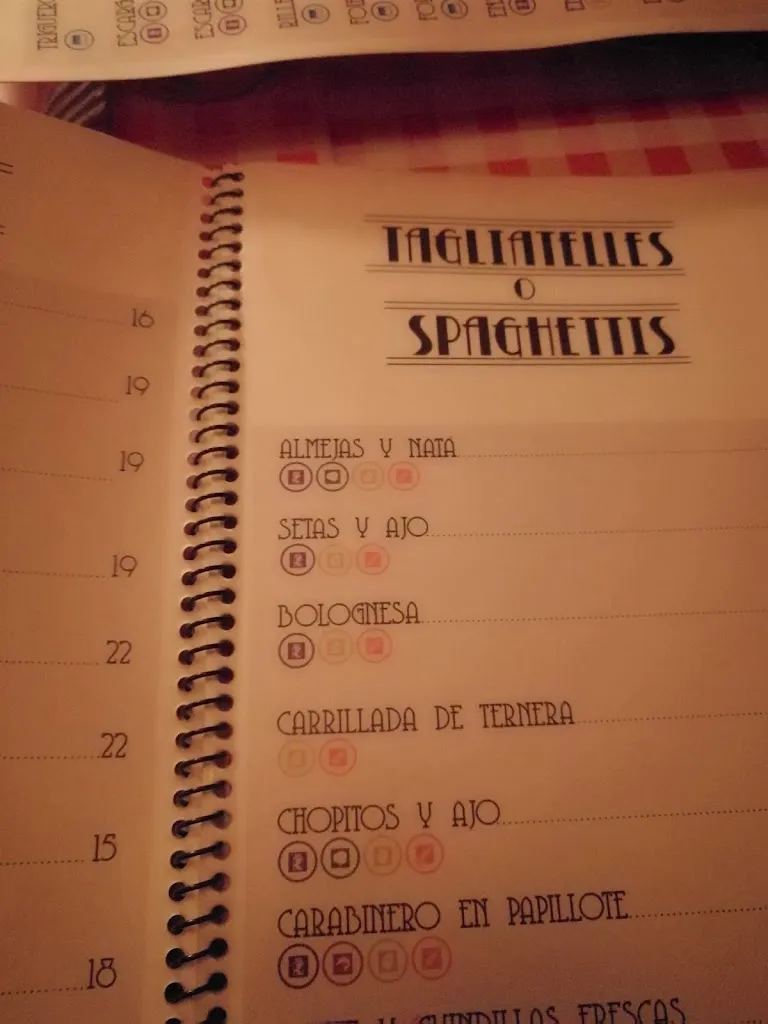 TRIGUERO
ESCARG
ESCAR
RILLE
FO
16
19
19
19
22
22
15
18
TAGLIATELLES
O
SPAGHETTIS
ALMEJAS Y NATA
SETAS Y AJO
BOLOGNESA
CARRILLADA DE TERNERA
CHOPITOS Y AJO
CARABINERO EN PAPILLOTE
Y GUINDILLAS FRESCAS